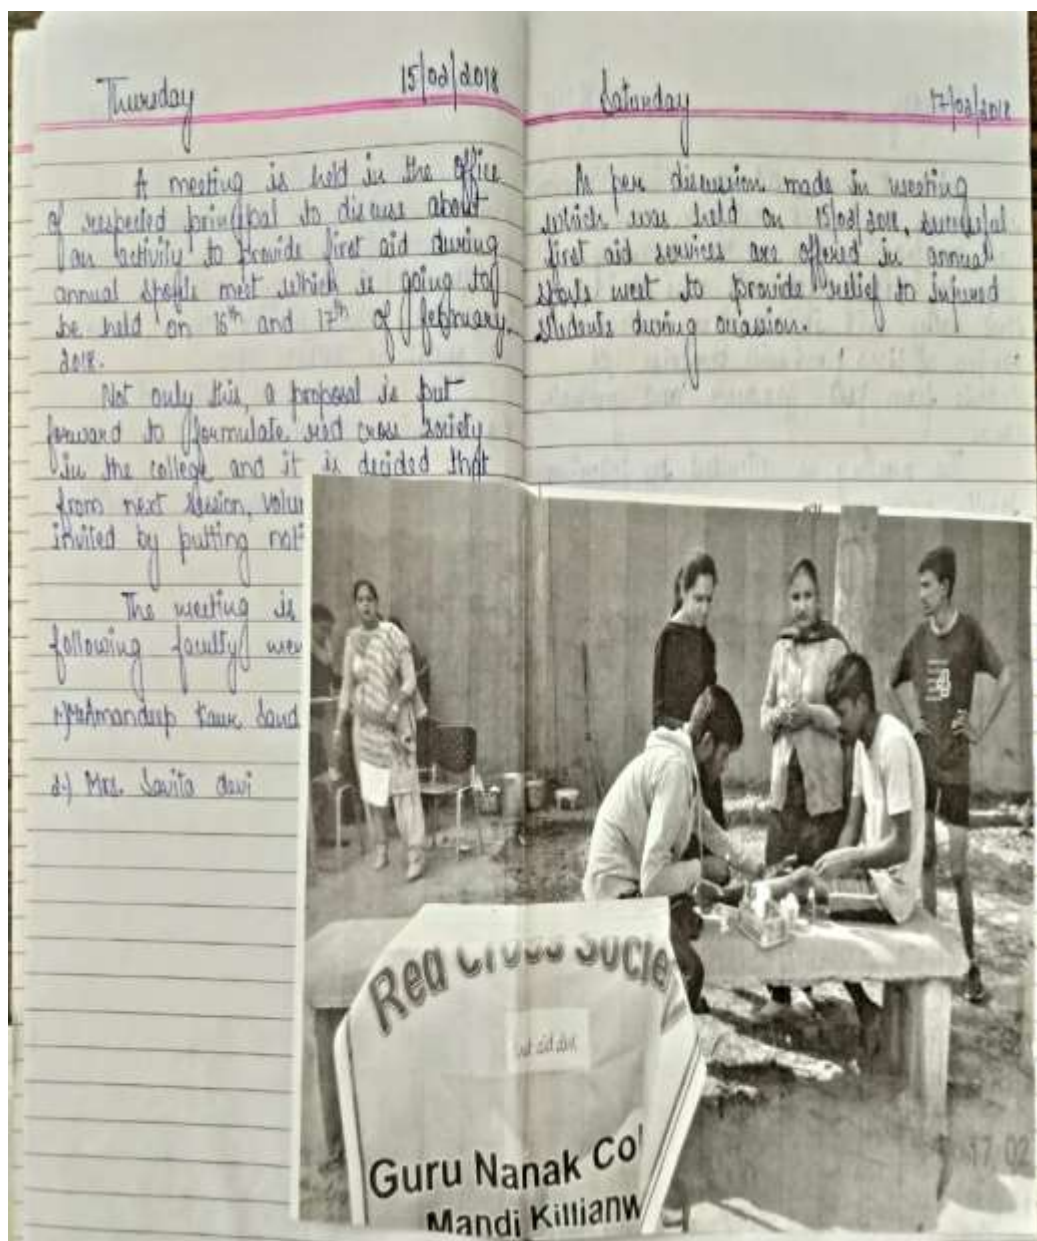 Thursday 15/02/2018
A meeting is held in the office
of respected principal to discuss about
an activity to provide first aid during
annual sports meet which is going to
be held on 16th and 17th of february,
2018.
Not only this, a proposal is put
forward to formulate red cross society
in the college and it is decided that
from next session, volun
invited by putting noti
The meeting is
following faculty mem
1-) Mrs Amandeep Kaur Sand
2-) Mrs. Savita devi
Saturday 17/02/2018
As per discussion made in meeting
which was held on 15/02/2018, successful
first aid services are offered in annual
sports meet to provide relief to injured
students during ocassion.
Red Cross Socie
aid
Guru Nanak Col
Mandi Killianw
17 02